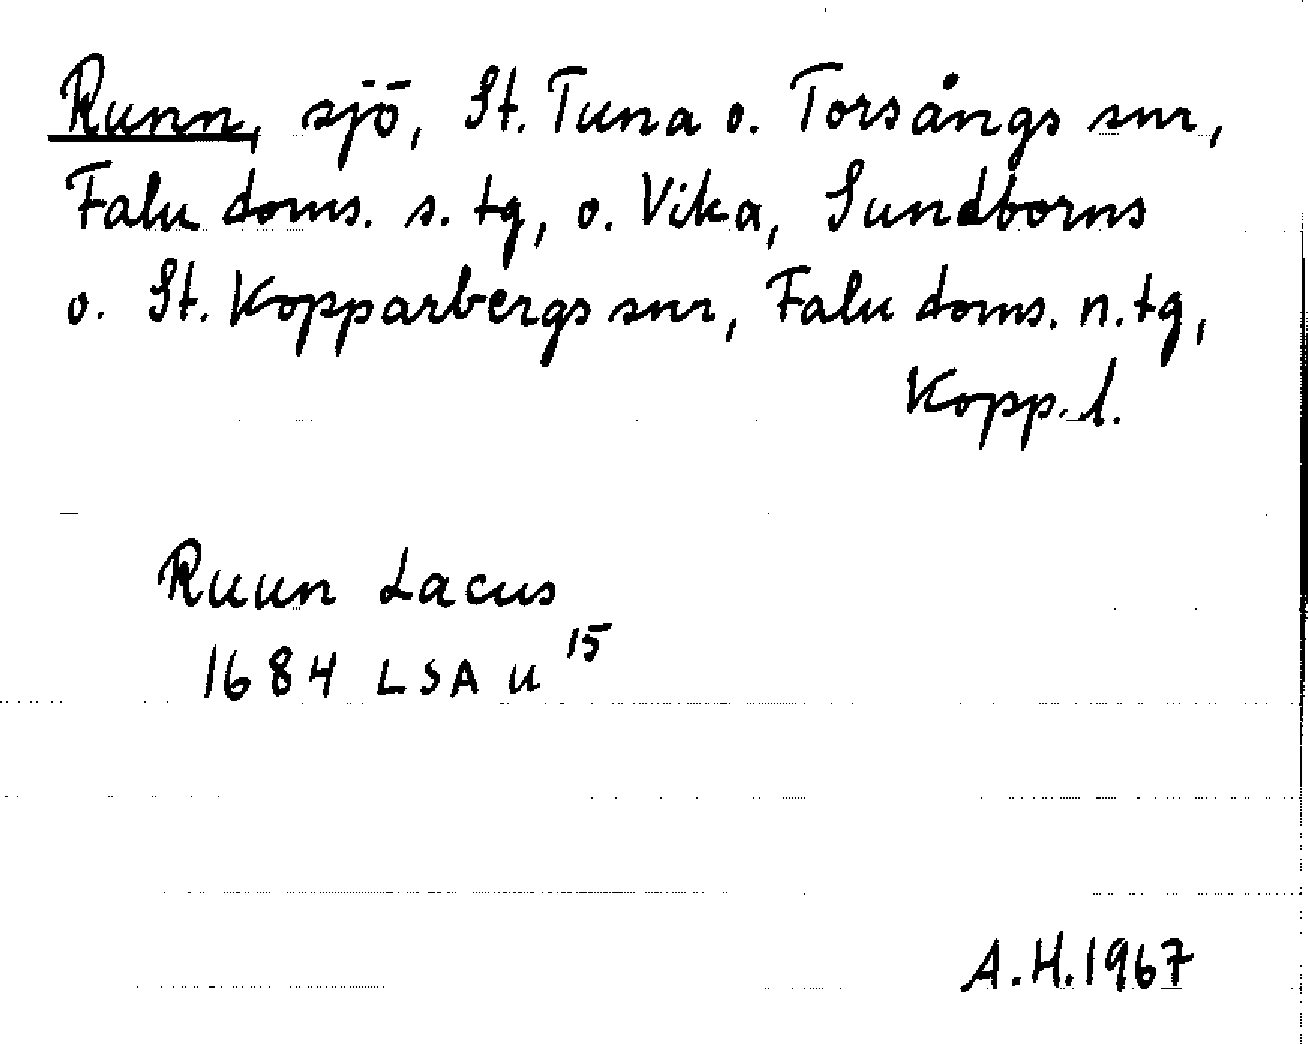 Runn, sjö, St. Tuna o. Torsångs snr,
Falu doms. s. tg, o. Vika, Sundborns
o. St. Kopparbergs snr, Falu doms. n. tg,
Kopp. l.
Ruun Lacus
1684 LSA U 15
A.H. 1967